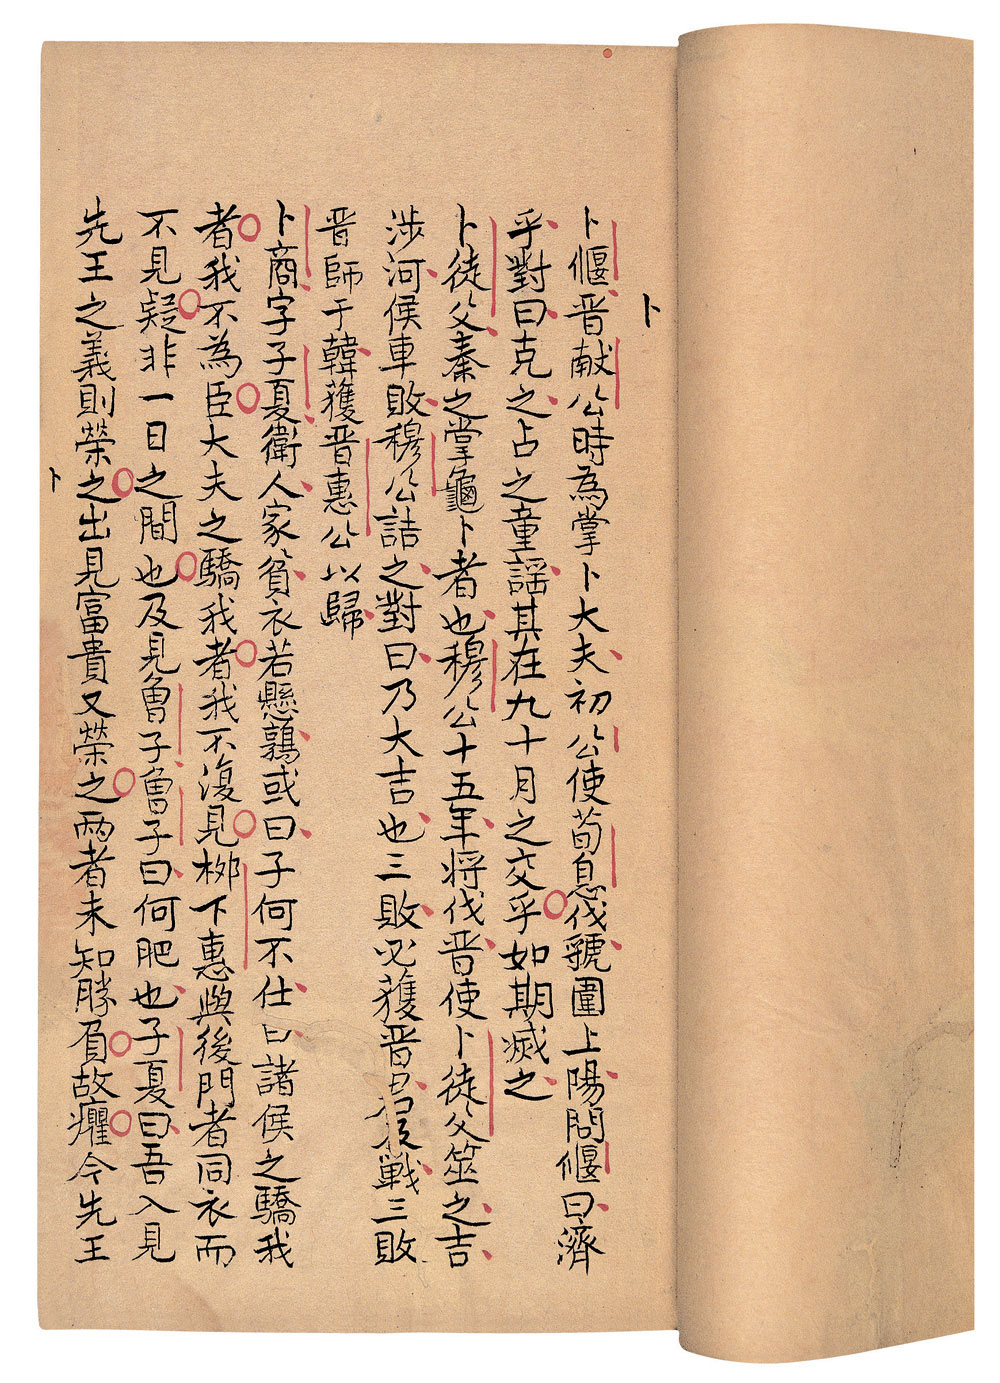 卜
卜偃晋献公時為掌卜大夫初公使荀息伐虢圍上陽問偃曰濟
乎對曰克之占之童謡其在九十月之交乎如期滅之
卜徒父秦之掌龜卜者也穆公十五年将伐晋使卜徒父筮之吉
涉河侯車敗穆公詰之對曰乃大吉也三敗必獲晋君及戰三敗
晋師于韓獲晋惠公以歸
卜商字子夏衛人家貧衣若懸鶉或曰子何不仕曰諸侯之驕我
者我不為臣大夫之驕我者我不復見栁下惠與後門者同衣而
不見疑非一日之間也及見魯子魯子曰何肥也子夏曰吾入見
先王之義則榮之出見富貴又榮之兩者未知勝負故癯今先王
卜